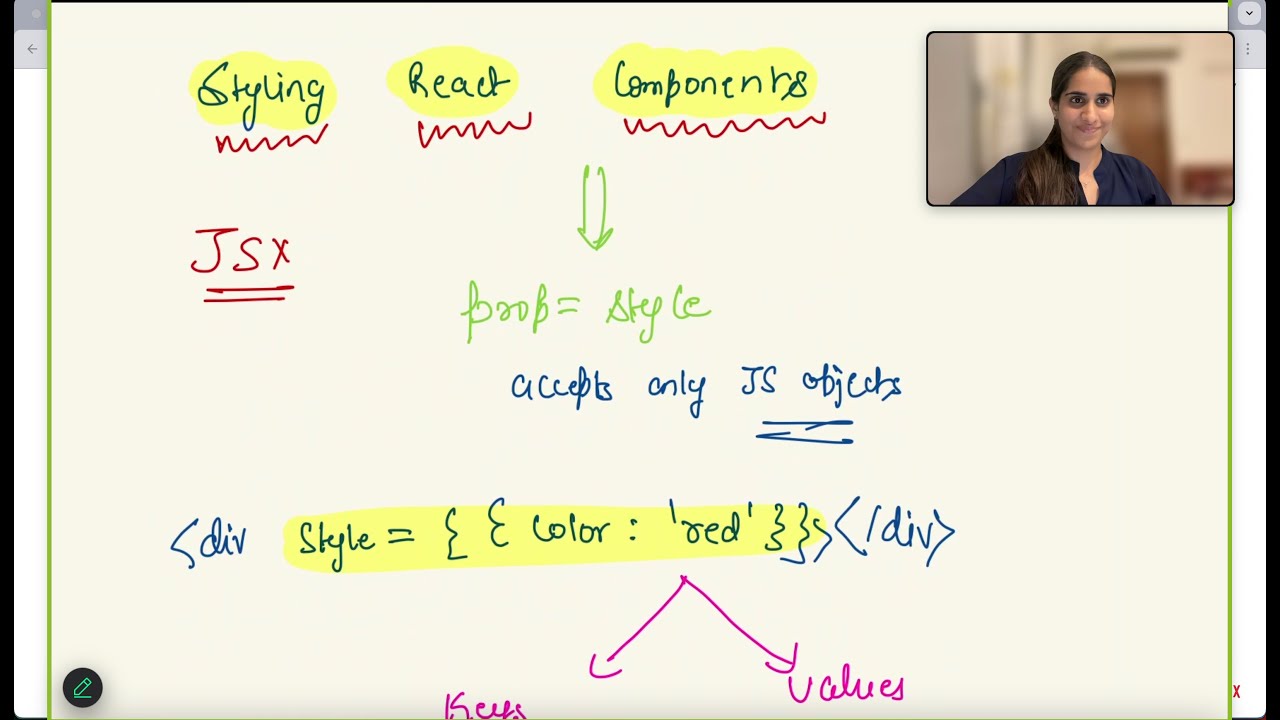 Styling React Components
JSX
prop = style
accepts only JS objects
<div style = { { color : 'red' } }></div>
Keys
Values
X